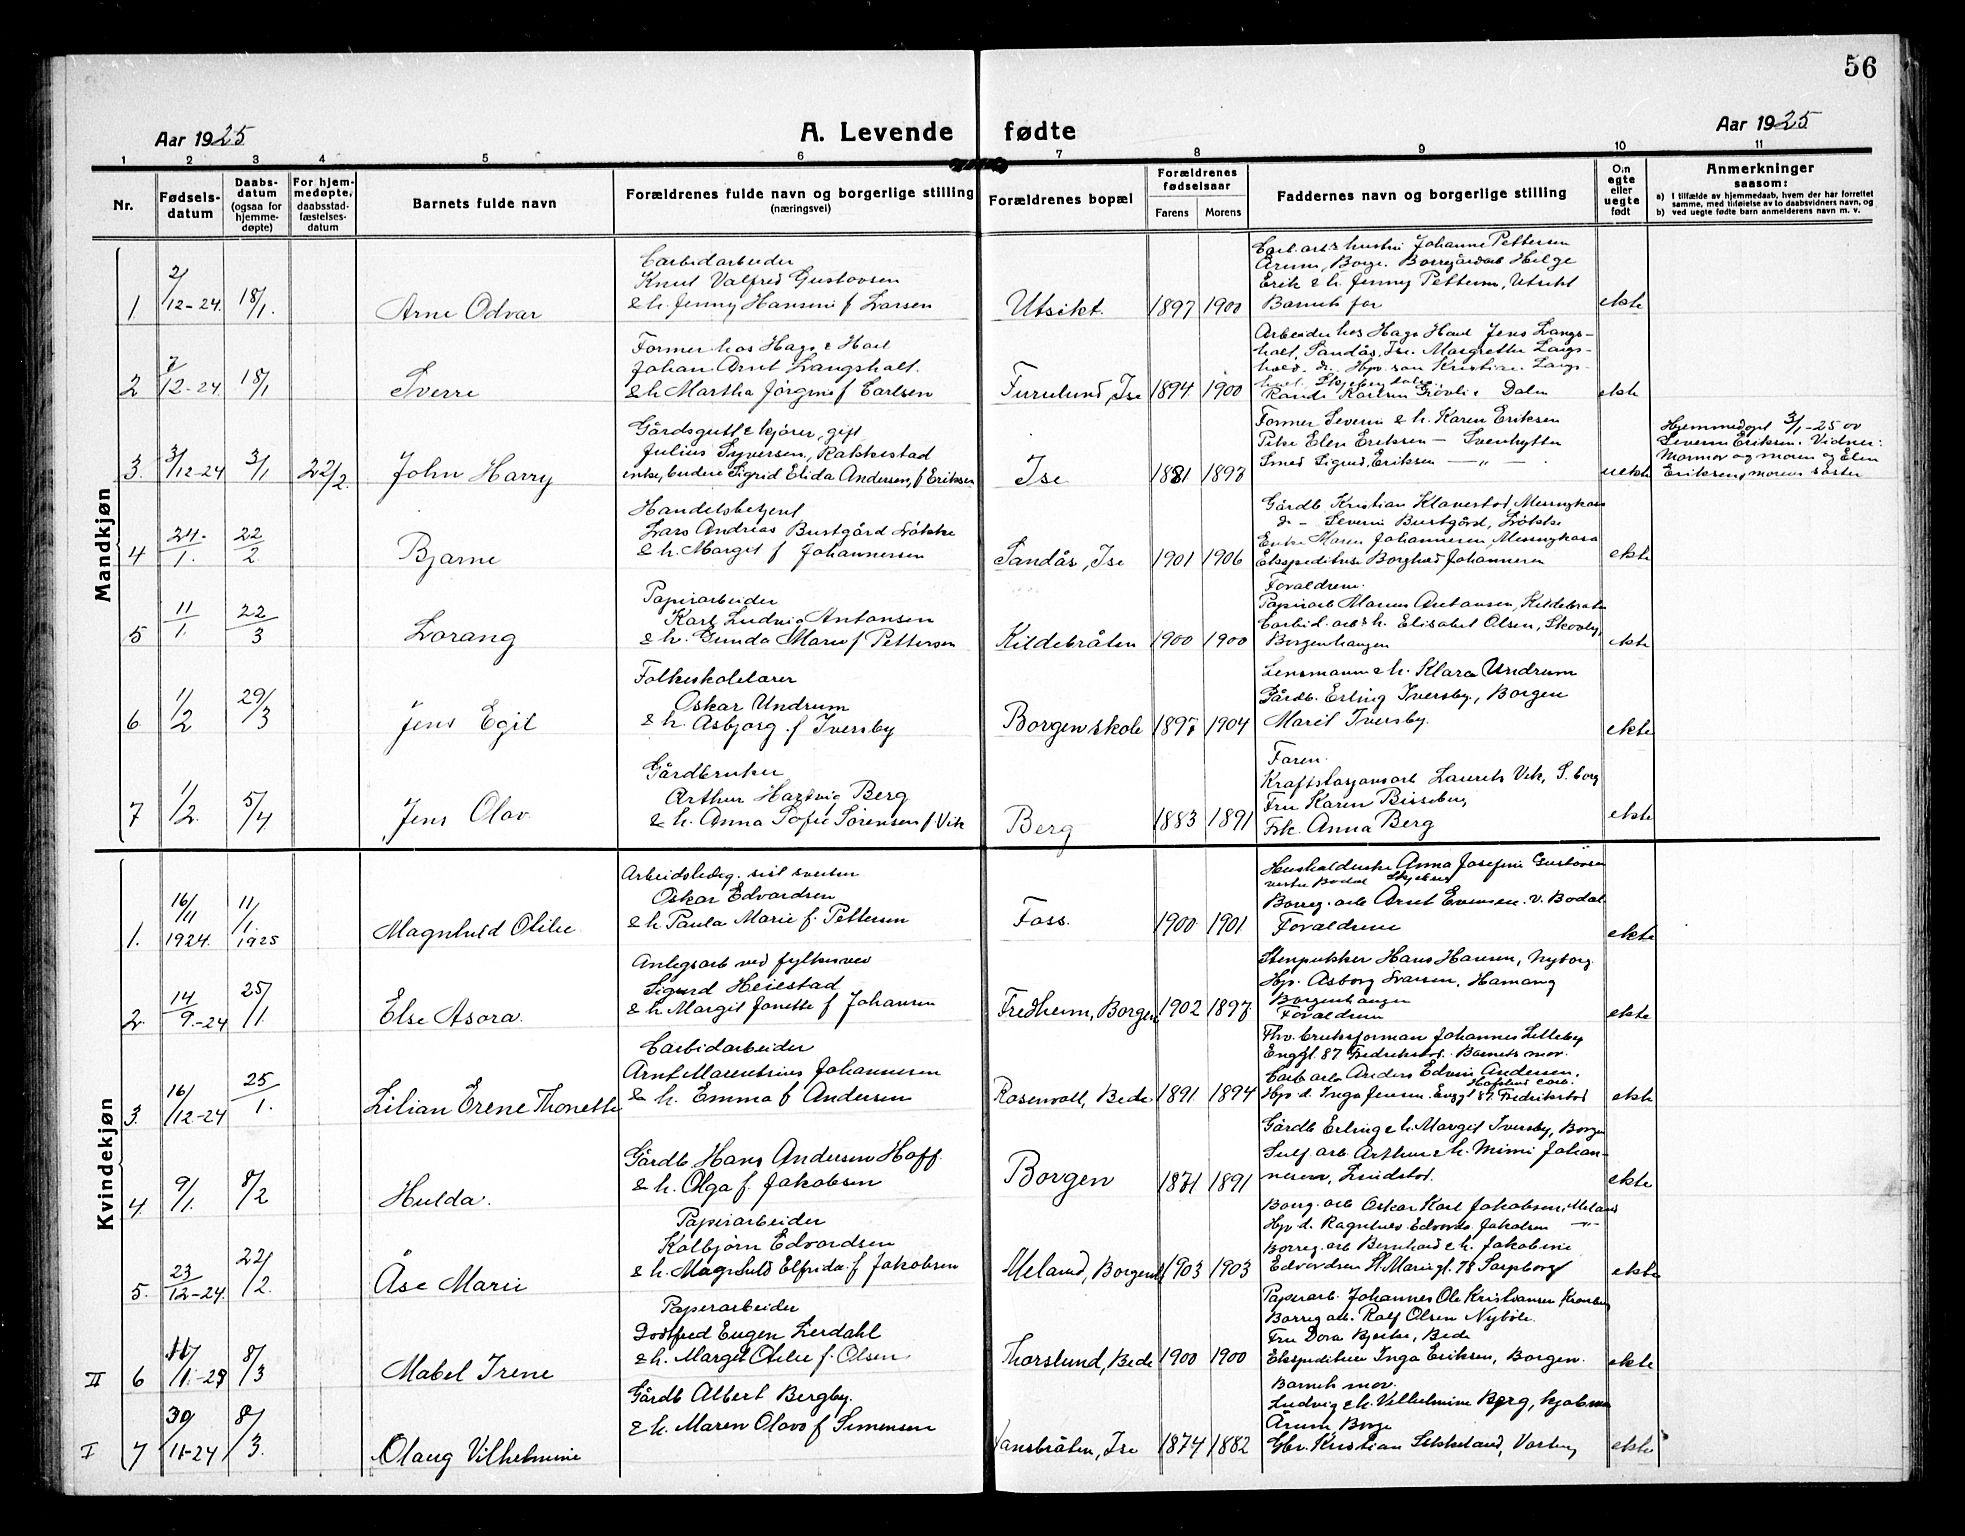 56
Aar 1925
A. Levende fødte
Aar 1925
1 2 3 4 5 6 7 8 9 10 11
Nr.
Fødsels-
datum
Daabs-
datum
(ogsaa for
hjemme-
døpte)
For hjem-
medøpte,
daabsstad-
fæstelses-
datum
Barnets fulde navn
Forældrenes fulde navn og borgerlige stilling
(næringsvei)
Forældrenes bopæl
Forældrenes
fødselsaar
Farens Morens
Faddernes navn og borgerlige stilling
Om
egte
eller
uegte
født
Anmerkninger
saasom:
a) I tilfælde av hjemmedaab, hvem der har forrettet
samme, med tilføielse av to daabsvidners navn, og
b) ved uegte fødte barn anmelderens navn m. v.
Mandkjøn
1 2/12-24 18/1. Arne Odvar
Carbidarbeider
Knut Valfred Gustavsen
& h. Jenny Hansine f Larsen
Utsikt. 1897 1900
Carb. arb's hustru Johanne Pettersen
Årum, Borge. Borregårdarb Helge
Erik & h. Jenny Pettersen, Utsikt
Barnets far
ekte
2 7/12-24 18/1 Sverre
Former hos Hago & Hoel
Johan Arnt Langsholt.
& h. Martha Jørgine f Carlsen
Furulund, Ise 1894 1900
Arbeider hos Hago Hoel Jens Langs-
holt, Sandås, Ise. Margrethe Langs-
Kristian Langs-
ekte
3. 3/12-24 3/1 22/2. John Harry
Gårdsgutt & kjører, gift
Julius Syversen, Rakkestad
enke, budeie Sigrid Elida Andersen, f Eriksen
Ise 1881 1897
Former Severin & h. Karen Eriksen
Pike Elen Eriksen — Svenhytten
Smed Sigurd Eriksen — " —
uekte
Hjemmedøpt 3/1-25 av
Severin Eriksen. Vidner:
Mormor og moren og Elen
Eriksen, morens søster
4 24/1. 22/2 Bjarne
Handelsbetjent
Lars Andreas Bustgård Løkke
& h. Margit f Johannesen
Sandås, Ise 1901 1906
Gårdb Kristian Klavestad
d. — Severin Bustgård, Løkke
Enke Maren Johannesen
Ekspeditrise Borghild Johannesen
ekte
5 11/1. 22/3 Lorang
Papirarbeider
Karl Ludvig Antonsen
& h. Gunda Marie f Pettersen
Kildebråten 1900 1900
Forældrene.
Papirarb Marius Antonsen, Kildebråten
Carbid. arb's h. Elisabet Olsen, Skovly,
Borgenhaugen
ekte
6 1/2 29/3 Jens Egil
Folkeskolelærer
Oskar Undrum
& h. Asbjørg f Iversby
Borgen skole 1897 1904
Lensmann & h. Klara Undrum
Gårdb. Erling Iversby, Borgen
Marit Iversby.
ekte
7 1/2. 5/4 Jens Olav.
Gårdbruker
Arthur Hartvig Berg
& h. Anna Sofie Sørensen f Vik
Berg 1883 1891
Faren.
Kraftstasjonsarb Laurits Vik, S. borg
Fru Karen Bisseberg
Frk. Anna Berg
ekte
Kvindekjøn
1. 16/11 1924. 11/1. 1925 Magnhild Otilie
Oskar Edvardsen
& h Paula Marie f. Pettersen
Foss. 1900 1901
Husholderske Anna Josefine Gustavsen
vestre Bodal Skjeberg
Borreg. arb Arnt Evensen. v. Bodal
Forældrene
ekte
2. 14/9.-24 25/1. Else Asora.
Anlegsarb ved fylkesvei
Sigurd Heiestad
& h Margit Jonette f Johansen
Fredheim, Borgen 1902 1897
Stenpukker Hans Hansen, Nyborg
Hp. Asborg Svarsen, Hamang
Borgenhaugen
Forældrene
ekte
3. 16/12-24 25/1. Lilian Erene Thonette
Carbidarbeider
Arnt Marentius Johannesen
& h. Emma f Andersen
Rosenvoll, Bede 1891 1894
Johannes Lilleby
Enggt 87 Fredrikstad. Barnets mor.
Carb arb Anders Edvin Andersen,
Hafslund carb.
Hp d. Inga Jensen. Enggt 87. Fredrikstad
ekte
4. 9/1. 8/2 Hulda.
Gårdb Hans Andersen Hoff.
& h. Olga f. Jakobsen
Borgen 1871 1891
Gårdb Erling & h. Margit Iversby, Borgen
Sulf arb Arthur & h. Mimi Johan-
nesen, Lundestad.
ekte
5. 23/12-24. 22/2. Åse Marie
Papirarbeider
Kolbjørn Edvardsen
& h. Magnhild Elfrida f Jakobsen
Meland, Borgen 1903 1903
Borg. arb Oskar Karl Jakobsen, Meland
Hp d. Ragnhild Edvarda Jakobsen — " —
Borreg. arb Bernhard & h. Jakobine
Edvardsen St Mariegt. 78 Sarpsborg
ekte
II 6 11/1.-25 8/3 Mabel Irene
Papirarbeider
Godtfred Eugen Lerdahl
& h. Margit Otilie f. Olsen
Thorslund, Bede 1900 1900
Papirarb. Johannes Ole Kristiansen, Kronberg
Borreg arb. Ralf Olsen Nybøle.
Fru Dora Bjerke, Bede
Ekspeditrise Inga Eriksen, Borgen.
ekte
I 7 30/11-24 8/3. Olaug Vilhelmine
Gårdb Albert Bergby.
& h. Maren Olava f Simensen
Vansbråten, Ise 1874 1882
Barnets mor.
Ludvig & h. Vilhelmine Berg, kjøbmann
Årum, Borge
Gbr. Kristian Sikkeland, Varteig
ekte